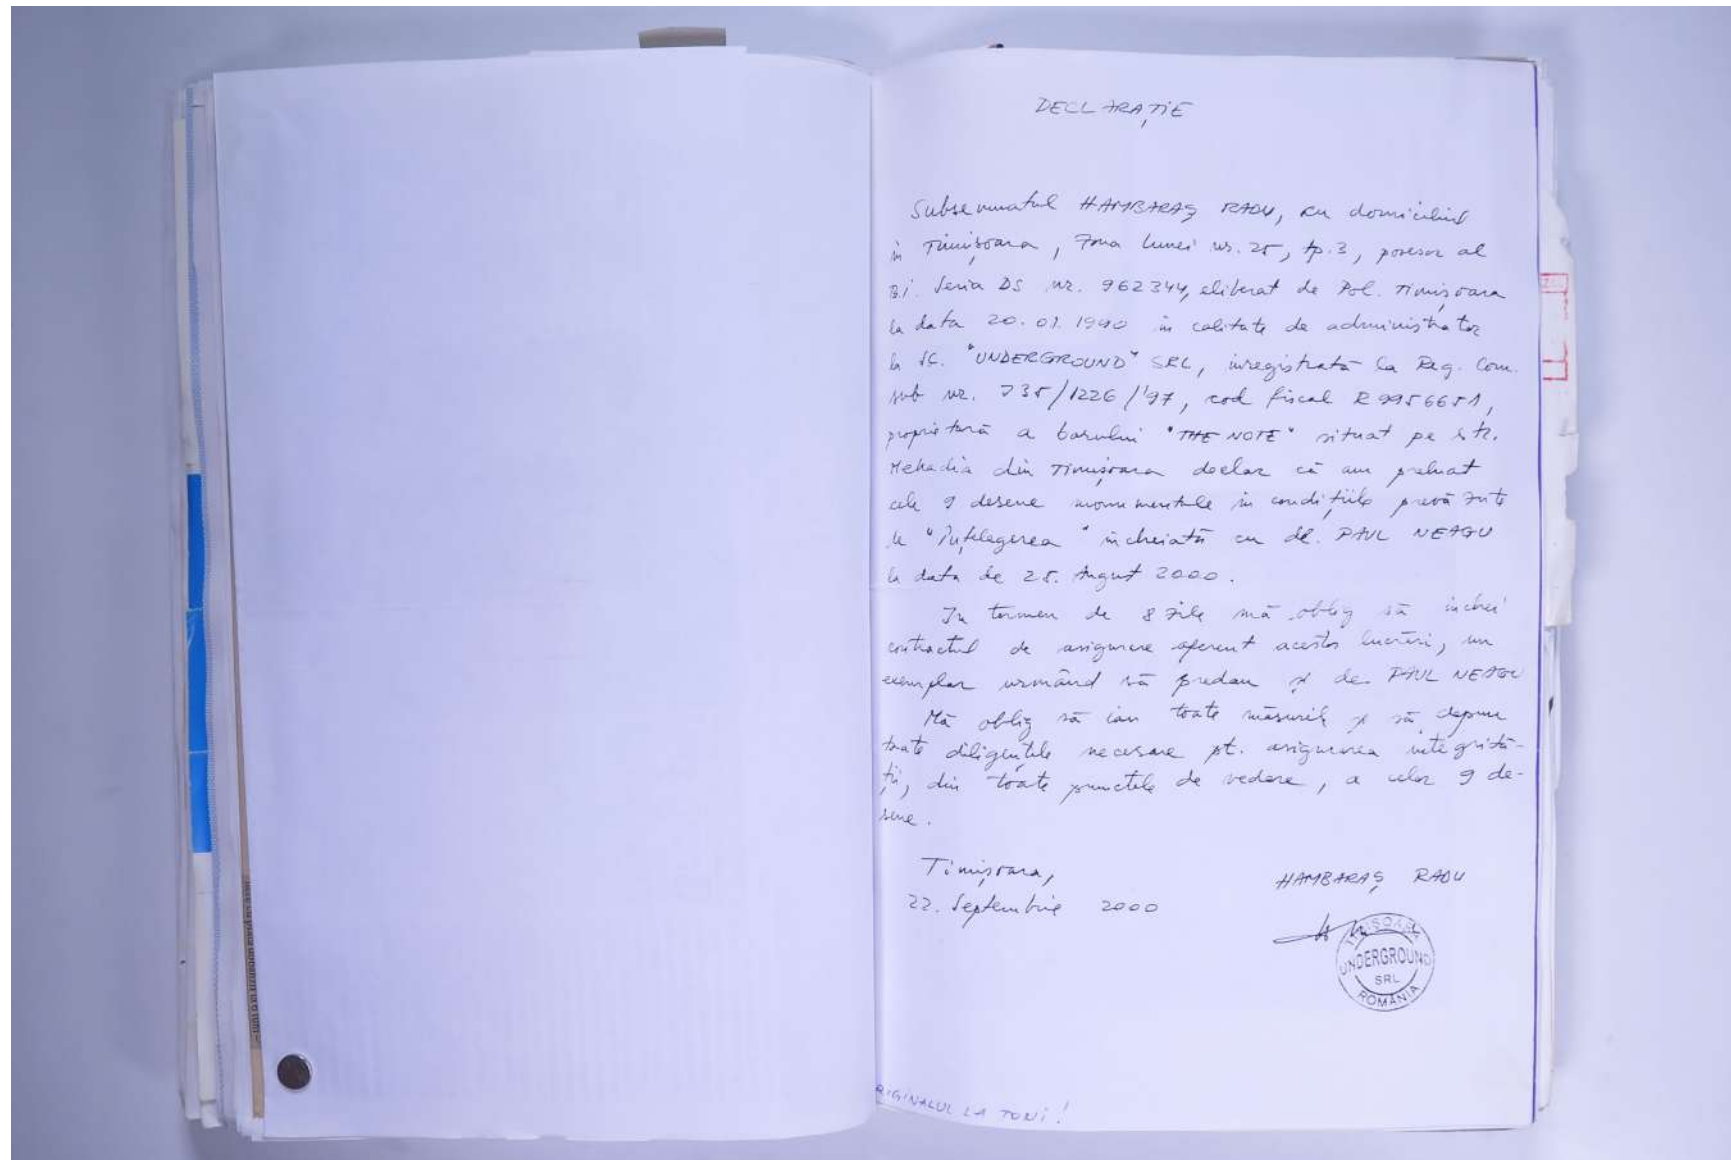 DECLARAȚIE
Subsemnatul HAMBARAȘ RADU, cu domiciliul
în Timișoara, Zona Lunei nr. 25, ap. 3, posesor al
B.i. Seria DS nr. 962344, eliberat de Pol. Timișoara
la data 20.01.1990 în calitate de administrator
la SC. "UNDERGROUND" SRL, înregistrată la Reg. Com.
sub nr. J35/1226/'97, cod fiscal R 9956651,
proprietară a barului "THE NOTE" situat pe str.
Mehadia din Timișoara declar că am preluat
cele 9 desene monumentale în condițiile prevăzute
la "Înțelegerea" încheiată cu dl. PAUL NEAGU
la data de 25. August 2000.
In termen de 8 zile mă oblig să închei
contractul de asigurare aferent acestor lucrări, un
exemplar urmând să predau și dlui PAUL NEAGU
Mă oblig să iau toate măsurile și să depun
toate diligențele necesare pt. asigurarea integrită-
ții, din toate punctele de vedere, a celor 9 de-
sene.
Timișoara,
22. Septembrie 2000
HAMBARAȘ RADU
TIMIȘOARA
UNDERGROUND
SRL
ROMÂNIA
RIGINALUL LA TONI!